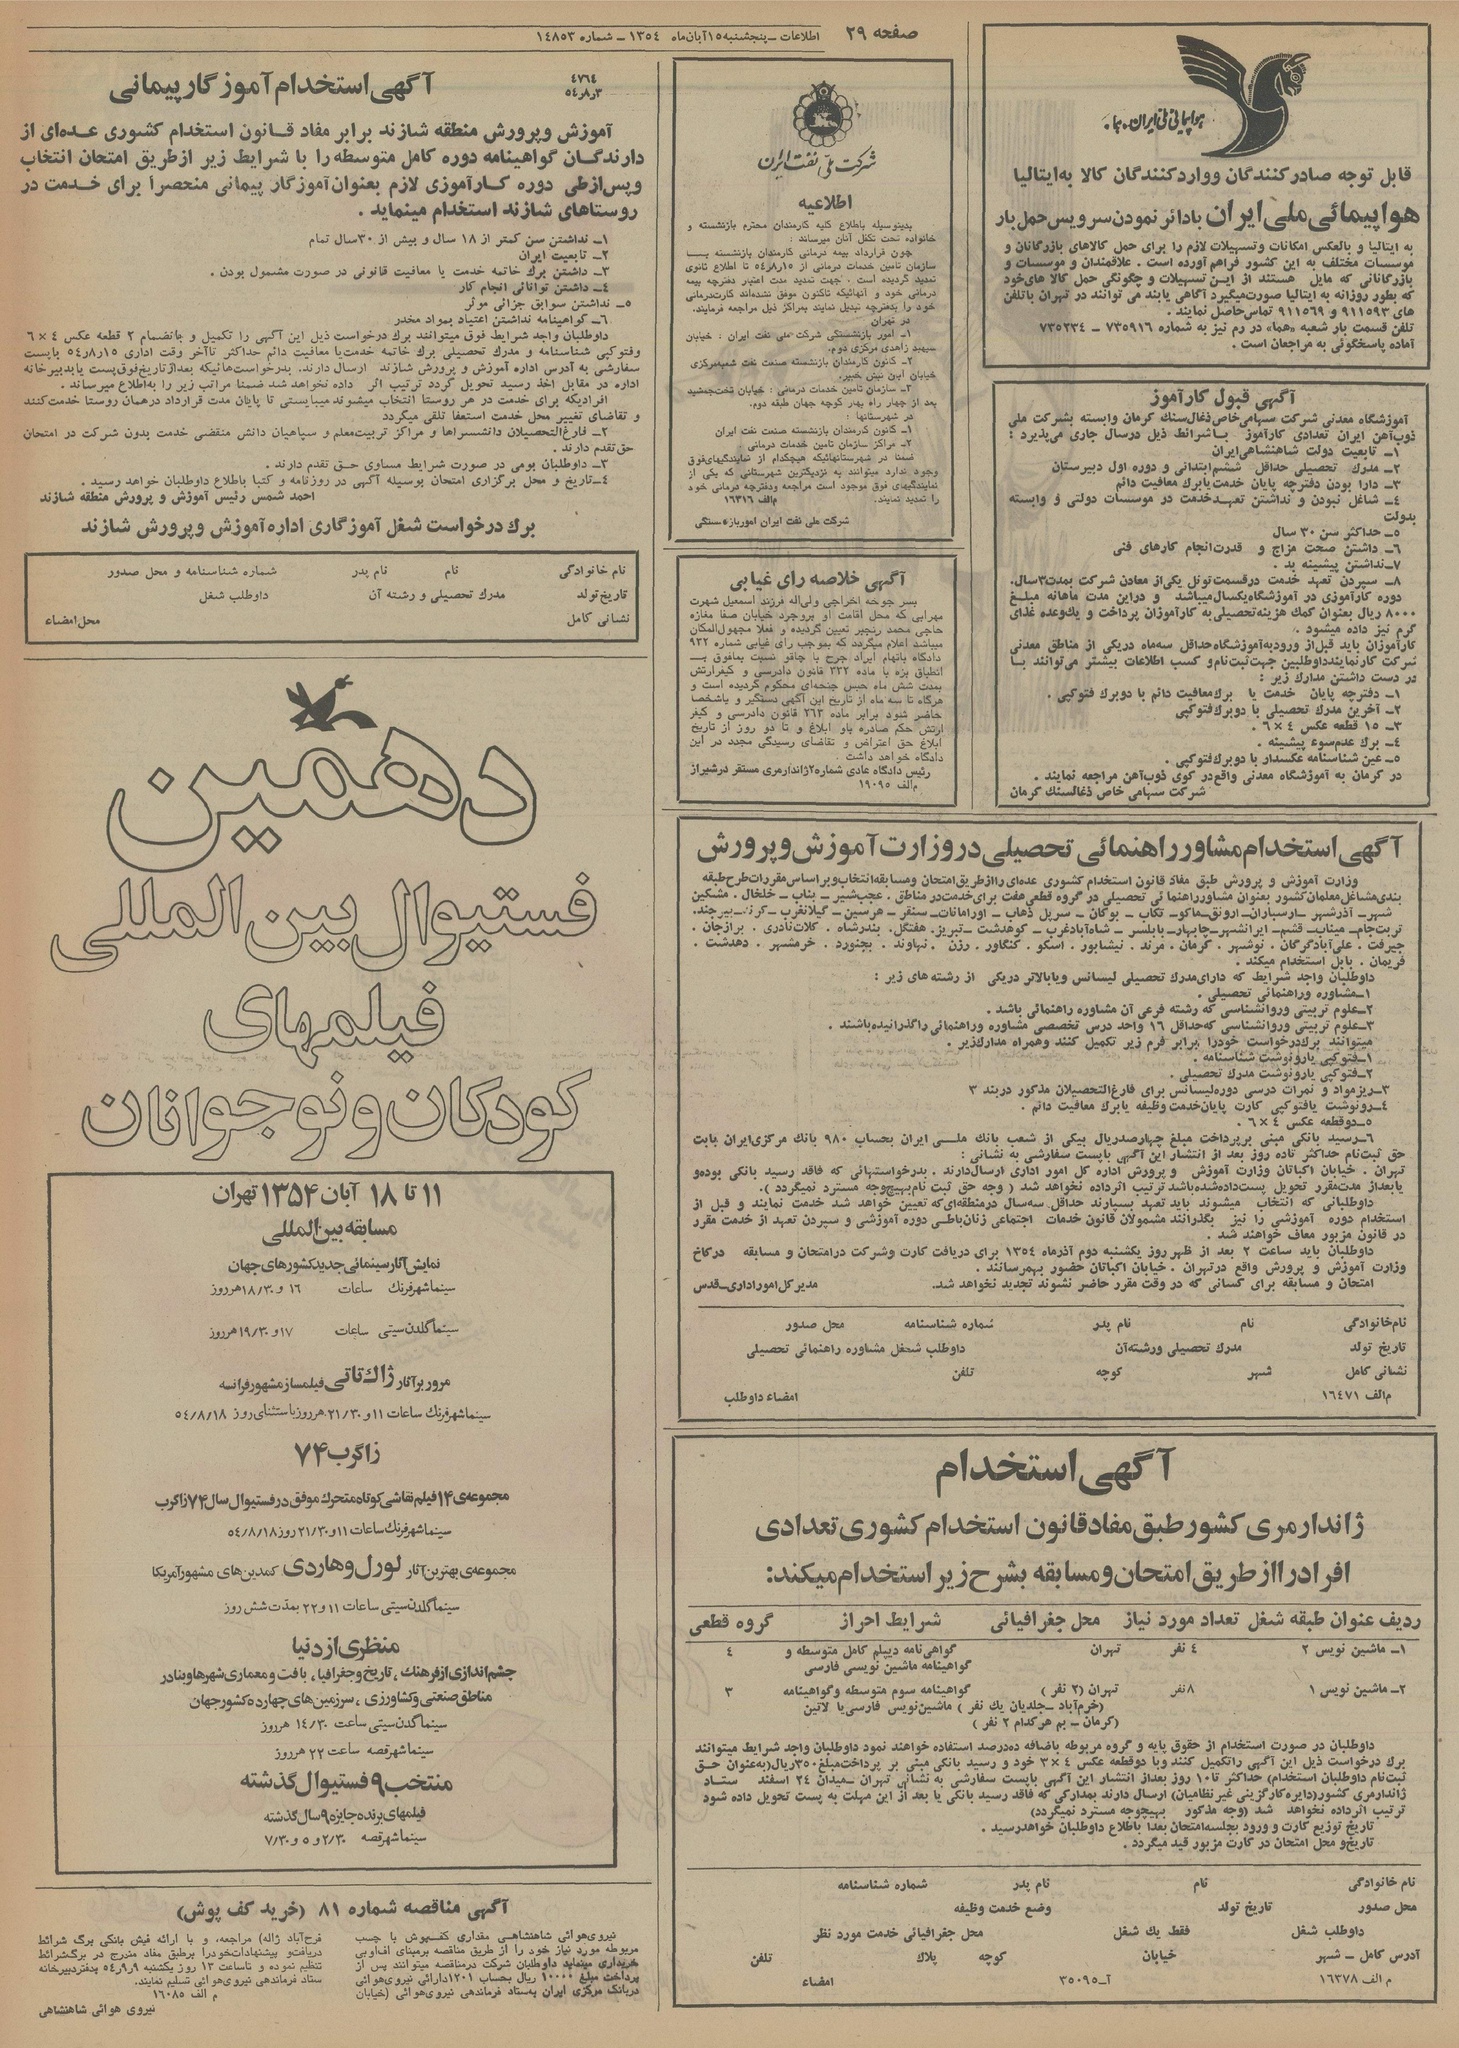 صفحه ۲۹
اطلاعات ـ پنجشنبه ۱۵ آبان‌ماه ۱۳۵۴ ـ شماره ۱۴۸۵۳
هواپیمائی ملی ایران ـ هما.
قابل توجه صادرکنندگان وواردکنندگان کالا به‌ایتالیا
هواپیمائی‌ملی‌ایران بادائر نمودن سرویس حمل‌بار
به ایتالیا و بالعکس امکانات وتسهیلات لازم را برای حمل کالاهای بازرگانان و
موسسات مختلف به این کشور فراهم آورده است . علاقمندان و موسسات و
بازرگانانی که مایل هستند از ایـن تسهیلات و چگونگی حمل کالا های‌خود
که بطور روزانه به ایتالیا صورت‌میگیرد آگاهی یابند می توانند در تهران باتلفن
های ۹۱۱۵۹۳ و ۹۱۱۵۶۹ تماس‌حاصل نمایند .
تلفن قسمت بار شعبه «هما» در رم نیز به شماره ۷۳۵۹۱۶ ـ ۷۳۵۲۳۴
آماده پاسخگوئی به مراجعان است .
آگهی قبول کارآموز
آموزشگاه معدنی شرکت سهامی‌خاص‌ذغال‌سنك کرمان وابسته بشرکت ملی
ذوب‌آهن ایران تعدادی کارآموز با شرائط ذیل درسال جاری می‌پذیرد :
۱ـ تابعیت دولت شاهنشاهی‌ایران
۲ـ مدرك تحصیلی حداقل ششم‌ابتدائی و دوره اول دبیرستان
۳ـ دارا بودن دفترچه پایان خدمت یابرك معافیت دائم
۴ـ شاغل نبودن و نداشتن تعهـدخدمت در موسسات دولتی و وابسته
بدولت
۵ـ حداکثر سن ۳۰ سال
۶ـ داشتن صحت مزاج و قدرت‌انجام کارهای فنی
۷ـ نداشتن پیشینه بد .
۸ـ سپردن تعهد خدمت درقسمت‌تونل یکی‌از معادن شرکت بمدت۳سال.
دوره کارآموزی در آموزشگاه‌یکسال‌میباشد و دراین مدت ماهانه مبلـغ
۸۰۰۰ ریال بعنوان کمك هزینه‌تحصیلی‌به کارآموزان پرداخت و یك‌وعده غذای
گرم نیز داده میشود .
کارآموزان باید قبل‌از ورودبه‌آموزشگاه‌حداقل سه‌ماه دریکی از مناطق معدنی
شرکت کارنمایندداوطلبین جهت‌ثبت‌نام‌و کسب اطلاعات بیشتر می‌توانند بـا
در دست داشتن مدارك زیر :
۱ـ دفترچه پایان خدمت یا برك‌معافیت دائم با دوبرك فتوکپی .
۲ـ آخرین مدرك تحصیلی با دوبرك‌فتوکپی
۳ـ ۱۵ قطعه عکس ۴ × ۶ .
۴ـ برك عدم‌سوء پیشینه .
۵ـ عین شناسنامه عکسدار با دوبرك‌فتوکپی .
در کرمان به آموزشگاه معدنی واقع‌در کوی ذوب‌آهن مراجعه نمایند .
شرکت سهامی خاص ذغالسنك کرمان
شرکت ملی نفت ایران
اطلاعیه
بدینوسیله باطلاع کلیه کارمندان محترم بازنشسته و
خانواده تحت تکفل آنان میرساند :
چون قرارداد بیمه درمانی کارمندان بازنشسته بـا
سازمان تامین خدمات درمانی از ۵۴ر۸ر۱۵ تا اطلاع ثانوی
تمدید گردیده است ، جهت تمدید مدت اعتبار دفترچه بیمه
درمانی خود و آنهائیکه تاکنون موفق نشده‌اند کارت‌درمانی
خود را بدفترچه تبدیل نمایند بمراکز ذیل مراجعه فرمایند.
در تهران
۱ـ امور بازنشستگی شرکت ملی نفت ایران : خیابان
سپهبد زاهدی مرکزی دوم.
۲ـ کانون کارمندان بازنشسته صنعت نفت شعبه‌مرکزی
خیابان آبان نبش خبیر.
۳ـ سازمان تامین خدمات درمانی : خیابان تخت‌جمشید
بعد از چهار راه بهار کوچه جهان طبقه دوم.
در شهرستانها :
۱ـ کانون کارمندان بازنشسته صنعت نفت ایران
۲ـ مراکز سازمان تامین خدمات درمانی .
ضمنا در شهرستانهائیکه هیچکدام از نمایندگیهای‌فوق
وجود ندارد میتوانند به نزدیکترین شهرستانی که یکی از
نمایندگیهای فوق موجود است مراجعه ودفترچه درمانی خود
را تمدید نمایند. م‌الف ۱۶۳۱۶
شرکت ملی نفت ایران اموربازنشستگی
آگهی خلاصه رای غیابی
بسر جوخه اخراجی ولی‌اله فرزند اسمعیل شهرت
مهرابی که محل اقامت او بروجرد خیابان صفا مغازه
حاجی محمد رنجبر تعیین گردیده و فعلا مجهول‌المکان
میباشد اعلام میگردد که بموجب رای غیابی شماره ۹۲۲
دادگاه باتهام ایراد جرح با چاقو نسبت بمافوق بـه
انطباق بزه با ماده ۳۲۲ قانون دادرسی و کیفرارتش
بمدت شش ماه حبس جنحه‌ای محکوم گردیده است و
هرگاه تا سه ماه از تاریخ این آگهی دستگیر و یاشخصا
حاضر شود برابر ماده ۲۶۳ قانون دادرسی و کیفر
ارتش حکم صادره باو ابلاغ و تا دو روز از تاریخ
ابلاغ حق اعتراض و تقاضای رسیدگی مجدد در این
دادگاه خواهد داشت .
رئیس دادگاه عادی شماره۲ژاندارمری مستقر درشیراز
م‌الف ۱۹۰۹۵
آگهی استخدام‌مشاور راهنمائی تحصیلی دروزارت آموزش وپرورش
وزارت آموزش و پرورش طبق مفاد قانون استخدام کشوری عده‌ای رااز‌طریق امتحان ومسابقه‌انتخاب‌وبر‌اساس‌مقررات‌طرح‌طبقه
بندی‌مشاغل‌معلمان‌کشور بعنوان مشاور‌راهنمائی تحصیلی در گروه قطعی‌هفت برای‌خدمت‌در مناطق . عجب‌شیر ـ بناب ـ خلخال. مشکین
شهرـ آذرشهر ـ ارسبارا‌ن ـ ارونق‌ـ‌ماکوـ تکاب ـ بوکان ـ سرپل ذهاب ـ اورامانات ـ سنقر ـ هرسین ـ گیلانغرب ـ کرند ـ بیرجند.
تربت‌جام‌ـ میناب‌ـ قشم‌ـ ایرانشهرـ چابهارـ بابلسر ـ شاه‌آبادغرب ـ کوهدشت ـ تبریز. هفتگل. بندرشاه . کلات‌نادری . برازجان .
جیرفت . علی‌آبادگرگان . نوشهر . کرمان . مرند . نیشابور . اسکو . کنگاور . رزن . نهاوند . بجنورد . خرمشهر . دهدشت .
فریمان . بابل استخدام میکند .
داوطلبان واجد شرایط که دارای‌مدرك تحصیلی لیسانس ویابالاتر دریکی از رشته های زیر :
۱ـ مشاوره وراهنمائی تحصیلی .
۲ـ علوم تربیتی وروانشناسی که رشته فرعی آن مشاوره راهنمائی باشد .
۳ـ علوم تربیتی وروانشناسی که‌حداقل ۱۶ واحد درس تخصصی مشاوره وراهنمائی راگذرانیده‌باشند .
میتوانند برك‌درخواست خودرا برابر فرم زیر تکمیل کنند وهمراه مدارك‌زیر .
۱ـ فتوکپی یارونوشت شناسنامه .
۲ـ فتوکپی یارونوشت مدرك تحصیلی .
۳ـ ریزمواد و نمرات درسی دوره‌لیسانس برای فارغ‌التحصیلان مذکور دربند ۳
۴ـ رونوشت یافتوکپی کارت پایان‌خدمت وظیفه یابرك معافیت دائم .
۵ـ دوقطعه عکس ۴ × ۶ .
۶ـ رسید بانکی مبنی برپرداخت مبلغ چهارصدریال بیکی از شعب بانك ملـی ایران بحساب ۹۸۰ بانك مرکزی‌ایران بابت
حق ثبت‌نام حداکثر تاده روز بعد از انتشار این آگهی باپست سفارشی به نشانی :
تهران . خیابان اکباتان وزارت آموزش و پرورش اداره کل امور اداری ارسال‌دارند . بدرخواستهائی که فاقد رسید بانکی بوده‌و
یابعداز مدت‌مقرر تحویل پست‌داده‌شده‌باشد ترتیب اثرداده نخواهد شد ( وجه حق ثبت نام‌بهیچ‌وجه مسترد نمیگردد ).
داوطلبانی که انتخاب میشوند باید تعهد بسپارند حداقل سه‌سال درمنطقه‌ای‌که تعیین خواهد شد خدمت نمایند و قبل از
استخدام دوره آموزشی را نیز بگذرانند مشمولان قانون خدمات اجتماعی زنان‌باطی دوره آموزشی و سپردن تعهد از خدمت مقرر
در قانون مزبور معاف خواهند شد .
داوطلبان باید ساعت ۲ بعد از ظهر روز یکشنبه دوم آذرماه ۱۳۵۴ برای دریافت کارت وشرکت درامتحان و مسابقه درکاخ
وزارت آموزش و پرورش واقع درتهران . خیابان اکباتان حضور بهمرسانند .
امتحان و مسابقه برای کسانی که در وقت مقرر حاضر نشوند تجدید نخواهد شد. مدیرکل‌اموراداری ـ قدس
نام‌خانوادگی نام نام پدر شماره شناسنامه محل صدور
تاریخ تولد مدرك تحصیلی ورشته‌آن داوطلب شغل مشاوره راهنمائی تحصیلی
نشانی کامل شهر کوچه تلفن
م‌الف ۱۶۴۷۱ امضاء داوطلب
آگهی استخدام
ژاندارمری کشور طبق مفاد قانون استخدام کشوری تعدادی
افراد را از طریق امتحان ومسابقه بشرح زیر استخدام میکند:
ردیف عنوان طبقه شغل تعداد مورد نیاز محل جغرافیائی شرایط احراز گروه قطعی
۱ـ ماشین نویس ۲ ۴ نفر تهران گواهی‌نامه دیپلم کامل متوسطه و ۴
گواهینامه ماشین نویسی فارسی
۲ـ ماشین نویس ۱ ۸نفر تهران (۲ نفر ) گواهینامه سوم متوسطه وگواهینامه ۳
(خرم‌آباد ـ جلدیان یك نفر ) ماشین‌نویس فارسی‌یا لاتین
(کرمان ـ بم هرکدام ۲ نفر )
داوطلبان در صورت استخدام از حقوق پایه و گروه مربوطه باضافه ده‌درصد استفاده خواهند نمود داوطلبان واجد شرایط میتوانند
برك درخواست ذیل این آگهی راتکمیل کنند وبا دوقطعه عکس ۴ × ۳ خود و رسید بانکی مبنی بر پرداخت‌مبلغ۳۵۰ریال(به‌عنوان حـق
ثبت‌نام داوطلبان استخدام) حداکثر تا ۱۰ روز بعداز انتشار این آگهی باپست سفارشی به نشانی تهران ـ میدان ۲۴ اسفند ستـاد
ژاندارمری کشور(دایره‌کارگزینی غیرنظامیان) ارسال دارند بمدارکی که فاقد رسید بانکی یا بعد از این مهلت به پست تحویل داده شود
ترتیب اثرداده نخواهد شد (وجه مذکور بهیچوجه مسترد نمیگردد)
تاریخ توزیع کارت و ورود بجلسه‌امتحان بعدا باطلاع داوطلبان خواهدرسید .
تاریخ‌و محل امتحان در کارت مزبور قید میگردد .
نام خانوادگی نام نام پدر شماره شناسنامه
محل صدور تاریخ تولد وضع خدمت وظیفه
داوطلب شغل فقط یك شغل محل جغرافیائی خدمت مورد نظر
آدرس کامل ـ شهر خیابان کوچه پلاك تلفن
م الف ۱۶۳۷۸ آـ ۳۵۰۹۵ امضاء
۴۷۶۴
۵۴ر۸ر۳
آگهی استخدام آموزگار پیمانی
آموزش وپرورش منطقه شازند برابر مفاد قـانون استخدام کشوری عده‌ای از
دارندگـان گواهینامه دوره کامل متوسطه را با شرایط زیر ازطریق امتحان انتخاب
وپس‌ازطی دوره کـارآموزی لازم بعنوان‌آموزگار پیمانی منحصراً برای خـدمت در
روستاهای شازند استخدام مینماید .
۱ـ نداشتن سن کمتر از ۱۸ سال و بیش از ۳۰سال تمام
۲ـ تابعیت ایران
۳ـ داشتن برك خاتمه خدمت یا معافیت قانونی در صورت مشمول بودن .
۴ـ داشتن توانائی انجام کار
۵ـ نداشتن سوابق جزائی موثر
۶ـ گواهینامه نداشتن اعتیاد بمواد مخدر
داوطلبان واجد شرایط فوق میتوانند برك درخواست ذیل این آگهی را تکمیل و بانضمام ۲ قطعه عکس ۴ × ۶
وفتوکپی شناسنامه و مدرك تحصیلی برك خاتمه خدمت‌یا معافیت دائم حداکثر تاآخر وقت اداری ۵۴ر۸ر۱۵ باپست
سفارشی به آدرس اداره آموزش و پرورش شازند ارسال دارند. بدرخواست‌هائیکه بعداز‌تاریخ‌فوق‌پست یابدبیرخانه
اداره در مقابل اخذ رسید تحویل گردد ترتیب اثر داده نخواهد شد ضمنا مراتب زیر را به‌اطلاع میرساند .
افرادیکه برای خدمت در هر روستا انتخاب میشوند میبایستی تا پایان مدت قرارداد درهمان روستا خدمت‌کنند
و تقاضای تغییر محل خدمت استعفا تلقی میگردد
۲ـ فارغ‌التحصیلان دانشسراها و مراکز تربیت‌معلم و سپاهیان دانش منقضی خدمت بدون شرکت در امتحان
حق تقدم دارند .
۳ـ داوطلبان بومی در صورت شرایط مساوی حـق تقدم دارند .
۴ـ تاریخ و محل برگزاری امتحان بوسیله آگهی در روزنامه و کتبا باطلاع داوطلبان خواهد رسید .
احمد شمس رئیس آموزش و پرورش منطقه شازند
برك درخواست شغل آموزگاری اداره آموزش وپرورش شازند
نام خانوادگی نام نام پدر شماره شناسنامه و محل صدور
تاریخ‌تولد مدرك تحصیلی و رشته آن داوطلب شغل
نشانی کامل محل‌امضاء
دهمین
فستیوال بین المللی
فیلمهای
کودکان و نوجوانان
۱۱ تا ۱۸ آبان ۱۳۵۴ تهران
مسابقه بین‌المللی
نمایش آثار سینمائی جدید کشورهای جهان
سینما شهر فرنگ ساعات ۱۶ و ۱۸/۳۰ هر روز
سینما گلدن سیتی ساعات ۱۷ و ۱۹/۳۰ هر روز
مرور بر آثار ژاك تاتی فیلمساز مشهور فرانسه
سینما شهر فرنگ ساعات ۱۱ و ۲۱/۳۰ هر روز باستثنای روز ۵۴/۸/۱۸
زاگرب ۷۴
مجموعه‌ی ۱۴ فیلم نقاشی کوتاه متحرك موفق در فستیوال سال ۷۴ زاگرب
سینما شهر فرنگ ساعات ۱۱ و ۲۱/۳۰ روز ۵۴/۸/۱۸
مجموعه‌ی بهترین آثار لورل وهاردی کمدین‌های مشهور آمریکا
سینما گلدن سیتی ساعات ۱۱ و ۲۲ بمدت شش روز
منظری از دنیا
چشم‌اندازی از فرهنگ ، تاریخ و جغرافیا ، بافت و معماری شهرها و بنادر
مناطق صنعتی و کشاورزی ، سرزمین‌های چهارده کشور جهان
سینما گلدن سیتی ساعت ۱۴/۳۰ هر روز
سینما شهر قصه ساعت ۲۲ هر روز
منتخب ۹ فستیوال گذشته
فیلمهای برنده جایزه ۹ سال گذشته
سینما شهر قصه ۲/۳۰ و ۵ و ۷/۳۰
آگهی مناقصه شماره ۸۱ (خرید کف پوش)
نیروی‌هوائی شاهنشاهی مقداری کفـپوش با چسب
مربوطه مورد نیاز خود را از طریق مناقصه برمبنای اف‌او‌بی
خریداری مینماید داوطلبان شرکت درمناقصه میتوانند پس از
پرداخت مبلغ ۱۰۰۰۰ ریال بحساب ۱۲۰۱دارائی نیروی‌هوائی
دربانك مرکزی ایران به‌ستاد فرماندهی نیروی‌هوائی (خیابان
فرح‌آباد ژاله) مراجعه، و با ارائه فیش بانکی برگ شرائط
دریافت‌و پیشنهادات‌خودرا برطبق مفاد مندرج در برگ‌شرائط
تنظیم نموده و تاساعت ۱۳ روز یکشنبه ۵۴ر۹ر۹ بدفتردبیرخانه
ستاد فرماندهی نیروی‌هوائی تسلیم نمایند.
م الف ۱۶۰۸۵
نیروی هوائی شاهنشاهی